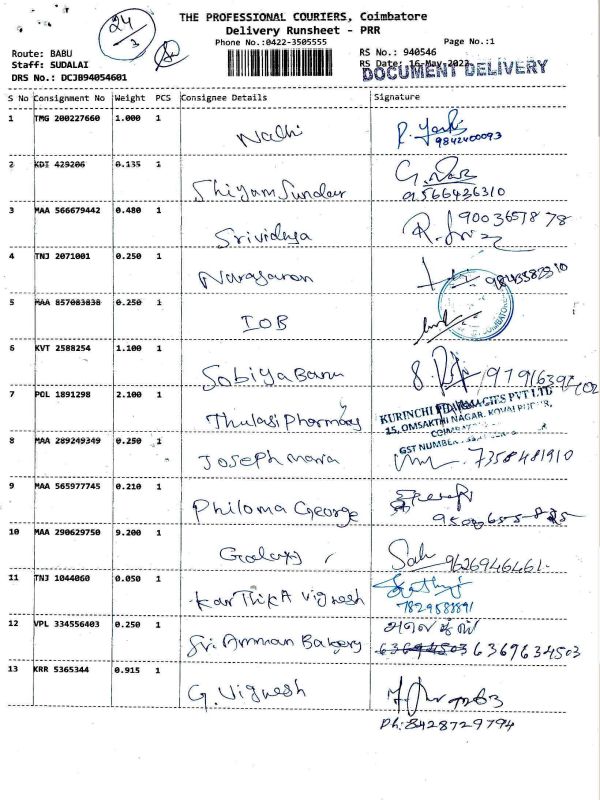 24
3
THE PROFESSIONAL COURIERS, Coimbatore
Delivery Runsheet - PRR
Phone No.:0422-3505555
Page No.:1
Route: BABU
Staff: SUDALAI
DRS No.: DCJB94054601
RS No.: 940546
RS Date: 16-May-2023
DOCUMENT DELIVERY
S No Consignment No Weight PCS Consignee Details Signature
1 TMG 200227660 1.000 1 Nadhi
9842400093
2 KDI 429206 0.135 1 Shiyam Sundar
9566436310
3 MAA 566679442 0.480 1 Srividya 9003657878
4 TNJ 2071001 0.250 1 Narayanan 9843582310
5 MAA 857083838 0.250 1 IOB
6 KVT 2588254 1.100 1 Sobiya Banu
7 POL 1891298 2.100 1 Thulasi Pharmacy
KURINCHI PHARMACIES PVT LTD
15, OMSAKTHI NAGAR,
GST NUMBER
8 MAA 289249349 0.250 1 Joseph maria 7358481910
9 MAA 565977745 0.210 1 Philoma George
10 MAA 290629750 9.200 1 Galaxy 9626946461
11 TNJ 1044060 0.050 1 Karthika Vignesh
7829583891
12 VPL 334556403 0.250 1 Sri Amman Bakery
6369634503
13 KRR 5365344 0.915 1 G. Vignesh
Ph: 8428729794